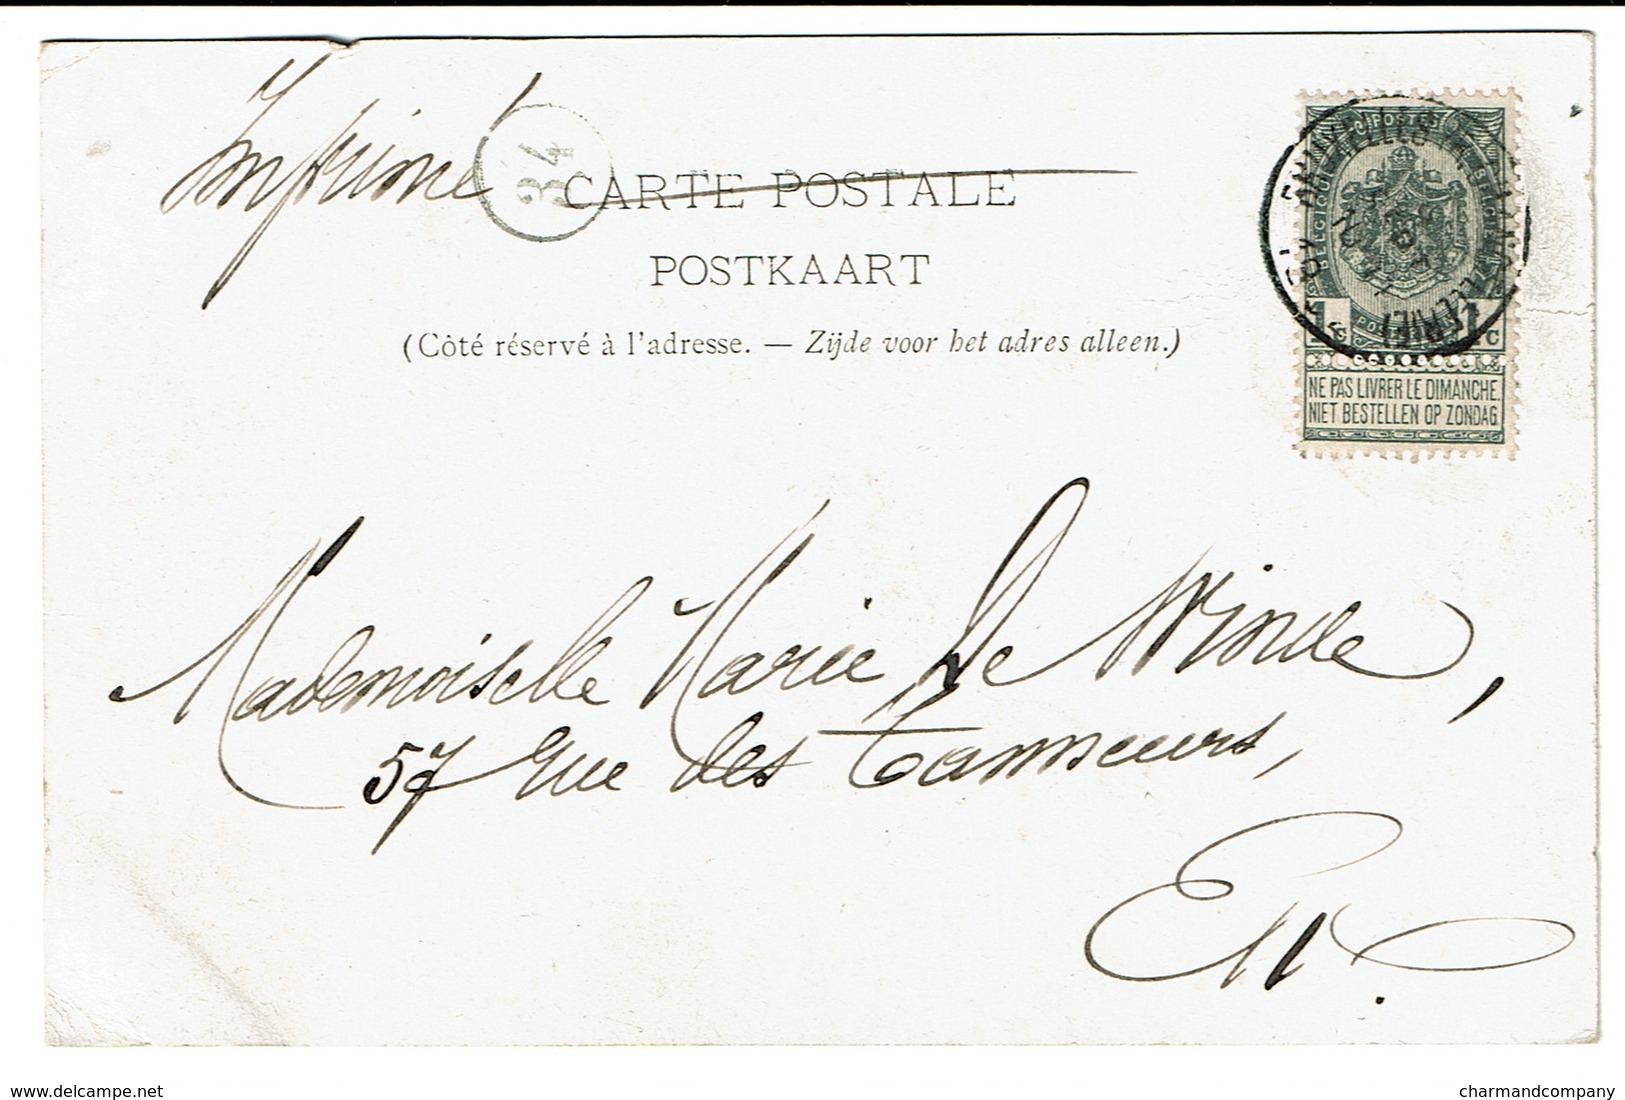 Imprimé
34
CARTE POSTALE
POSTKAART
(Côté réservé à l'adresse. — Zijde voor het adres alleen.)
POSTES
BRUXELLES
1 1
C
NE PAS LIVRER LE DIMANCHE.
NIET BESTELLEN OP ZONDAG
Mademoiselle Marie De Winde,
57 rue des Tanneurs,
EV.
delcampe.net
charmandcompany